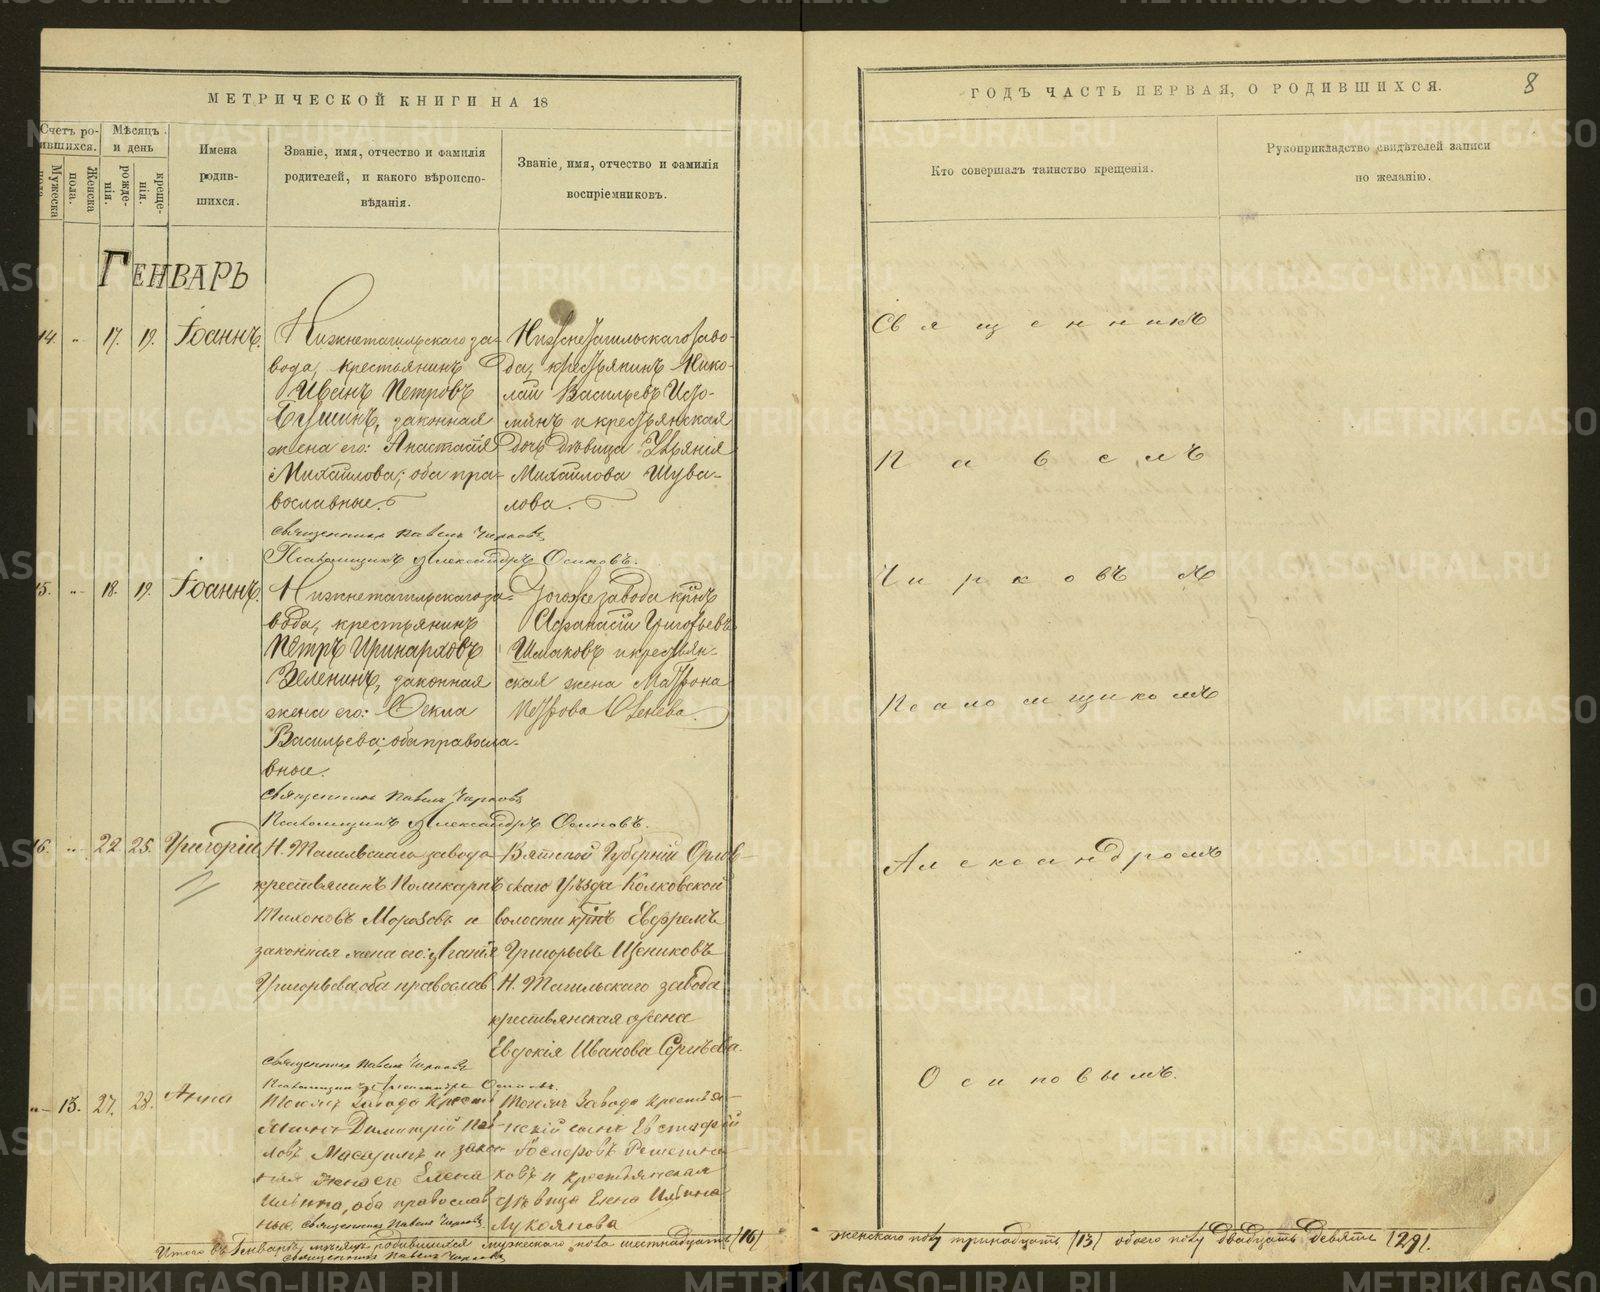 МЕТРИЧЕСКОЙ КНИГИ НА 18
Счетъ ро-
ившихся.
Мужеска
пола.
Женска
пола.
Мѣсяцъ
и день
рожде-
нія.
креще-
нія.
Имена
родив-
шихся.
Званіе, имя, отчество и фамилія
родителей, и какого вѣроиспо-
вѣданія.
Званіе, имя, отчество и фамилія
воспріемниковъ.
ГЕНВАРЬ
14. „ 17. 19. Іоаннъ.
Нижнетагильскаго за-
вода, крестьянинъ
Иванъ Петровъ
законная
жена его: Анастасія
Михайлова; оба пра-
вославные.
Нижнетагильскаго заво-
да, крестьянинъ Нико-
лай Васильевъ Исто-
минъ и крестьянская
дочь дѣвица
Михайлова Шува-
лова.
Священникъ Павелъ Чирковъ
Псаломщикъ Александръ Осиповъ.
15. „ 18. 19. Іоаннъ.
Нижнетагильскаго за-
вода, крестьянинъ
Петръ Иринарховъ
Зеленинъ, законная
жена его: Ѳекла
Васильева; оба правосла-
вные.
Тогоже завода кр-нъ
Афанасій Григорьевъ
Шмаковъ и крестьян-
ская жена Матрона
Петрова
Священникъ Павелъ Чирковъ
Псаломщикъ Александръ Осиповъ.
16. „ 22 25. Григорій
Н. Тагильскаго завода
крестьянинъ Поликарпъ
Тихоновъ Морозовъ и
законная жена его:
Григорьева оба православ.
Вятской Губерніи Орлов-
скаго Уѣзда Колковской
волости кр-нъ Ефремъ
Григорьевъ Щениковъ
Н. Тагильскаго завода
крестьянская жена
Евдокія Иванова Сергѣева.
Священникъ Павелъ Чирковъ
Псаломщикъ Александръ Осиповъ.
„ 13. 27. 28. Анна
завода крестья
янинъ Димитрій Пав
ловъ и закон
ная жена его Елена
Ильина, оба православ
ные.
завода крестья-
нскій сынъ Евстафій
ковъ и крестьянская
дѣвица Елена Ильина
Лукоянова
Священникъ Павелъ Чирковъ
Итого въ Генварѣ мѣсяцѣ родившихся мужескаго пола шестнадцать (16)
Священникъ Павелъ Чирковъ
ГОДЪ ЧАСТЬ ПЕРВАЯ, О РОДИВШИХСЯ.
8
Кто совершалъ таинство крещенія.
Рукоприкладство свидѣтелей записи
по желанію.
Священникъ
Павелъ
Чирковъ съ
Псаломщикомъ
Александромъ
Осиповымъ.
женскаго полу тринадцать (13) обоего полу двадцать девять (29).
METRIKI.GASO-URAL.RU